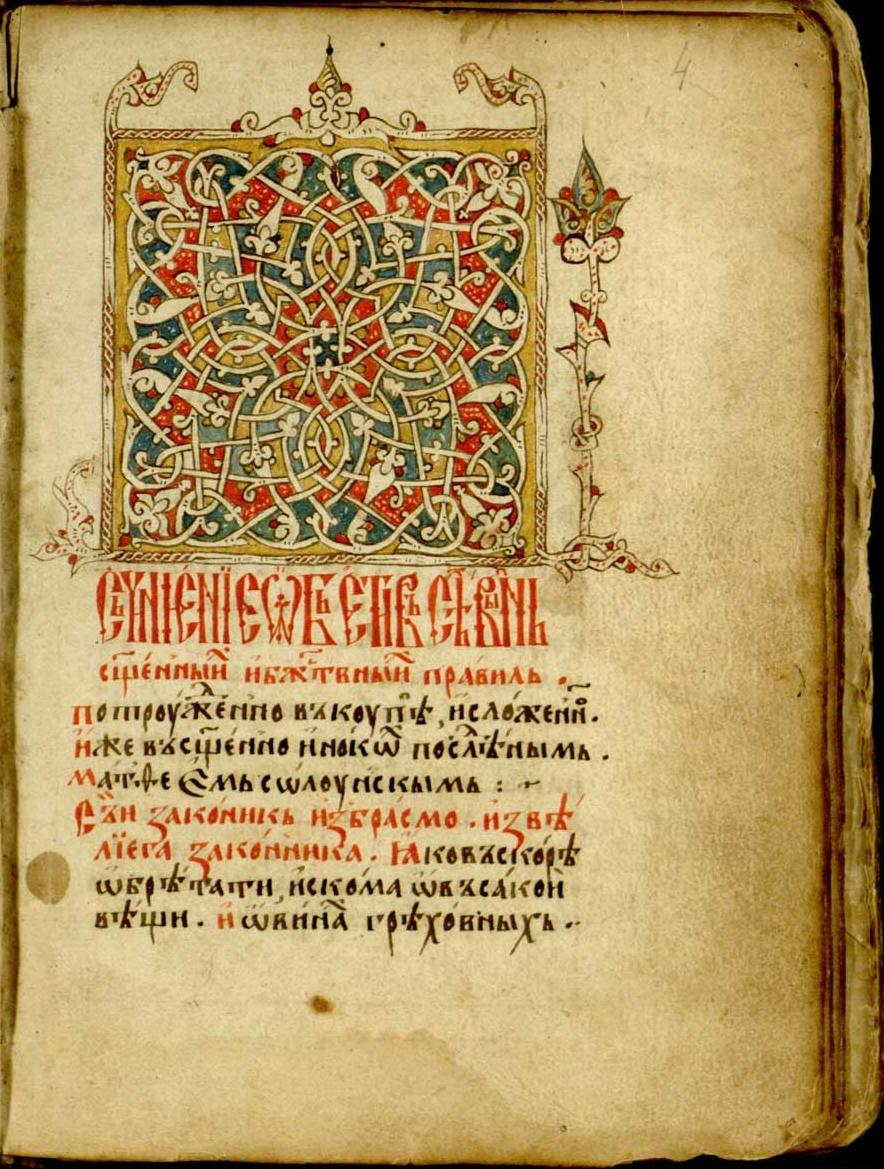 4
Съчинѥнїе ѡбъетїѥ въсѣ́хъ винь
сщ҃е́нныⷯ и бжⷭ҇твныⷯ правиль .
потрꙋж҃е́нно въкоупѣ , и сложеннⷪ .
и́же въ сщ҃е́нно и́нокѡⷯ послѣ́нымь .
маⷮѳе ѥмь сѡлоунскымь :~
Съи законикь избрасмо . из вѣ
лїега зако́нника . ꙗко въскорѣ
ѡбрѣтати , искома ѡ въсакои
вѣщи . и ѡ вина̀ грѣховныхь .